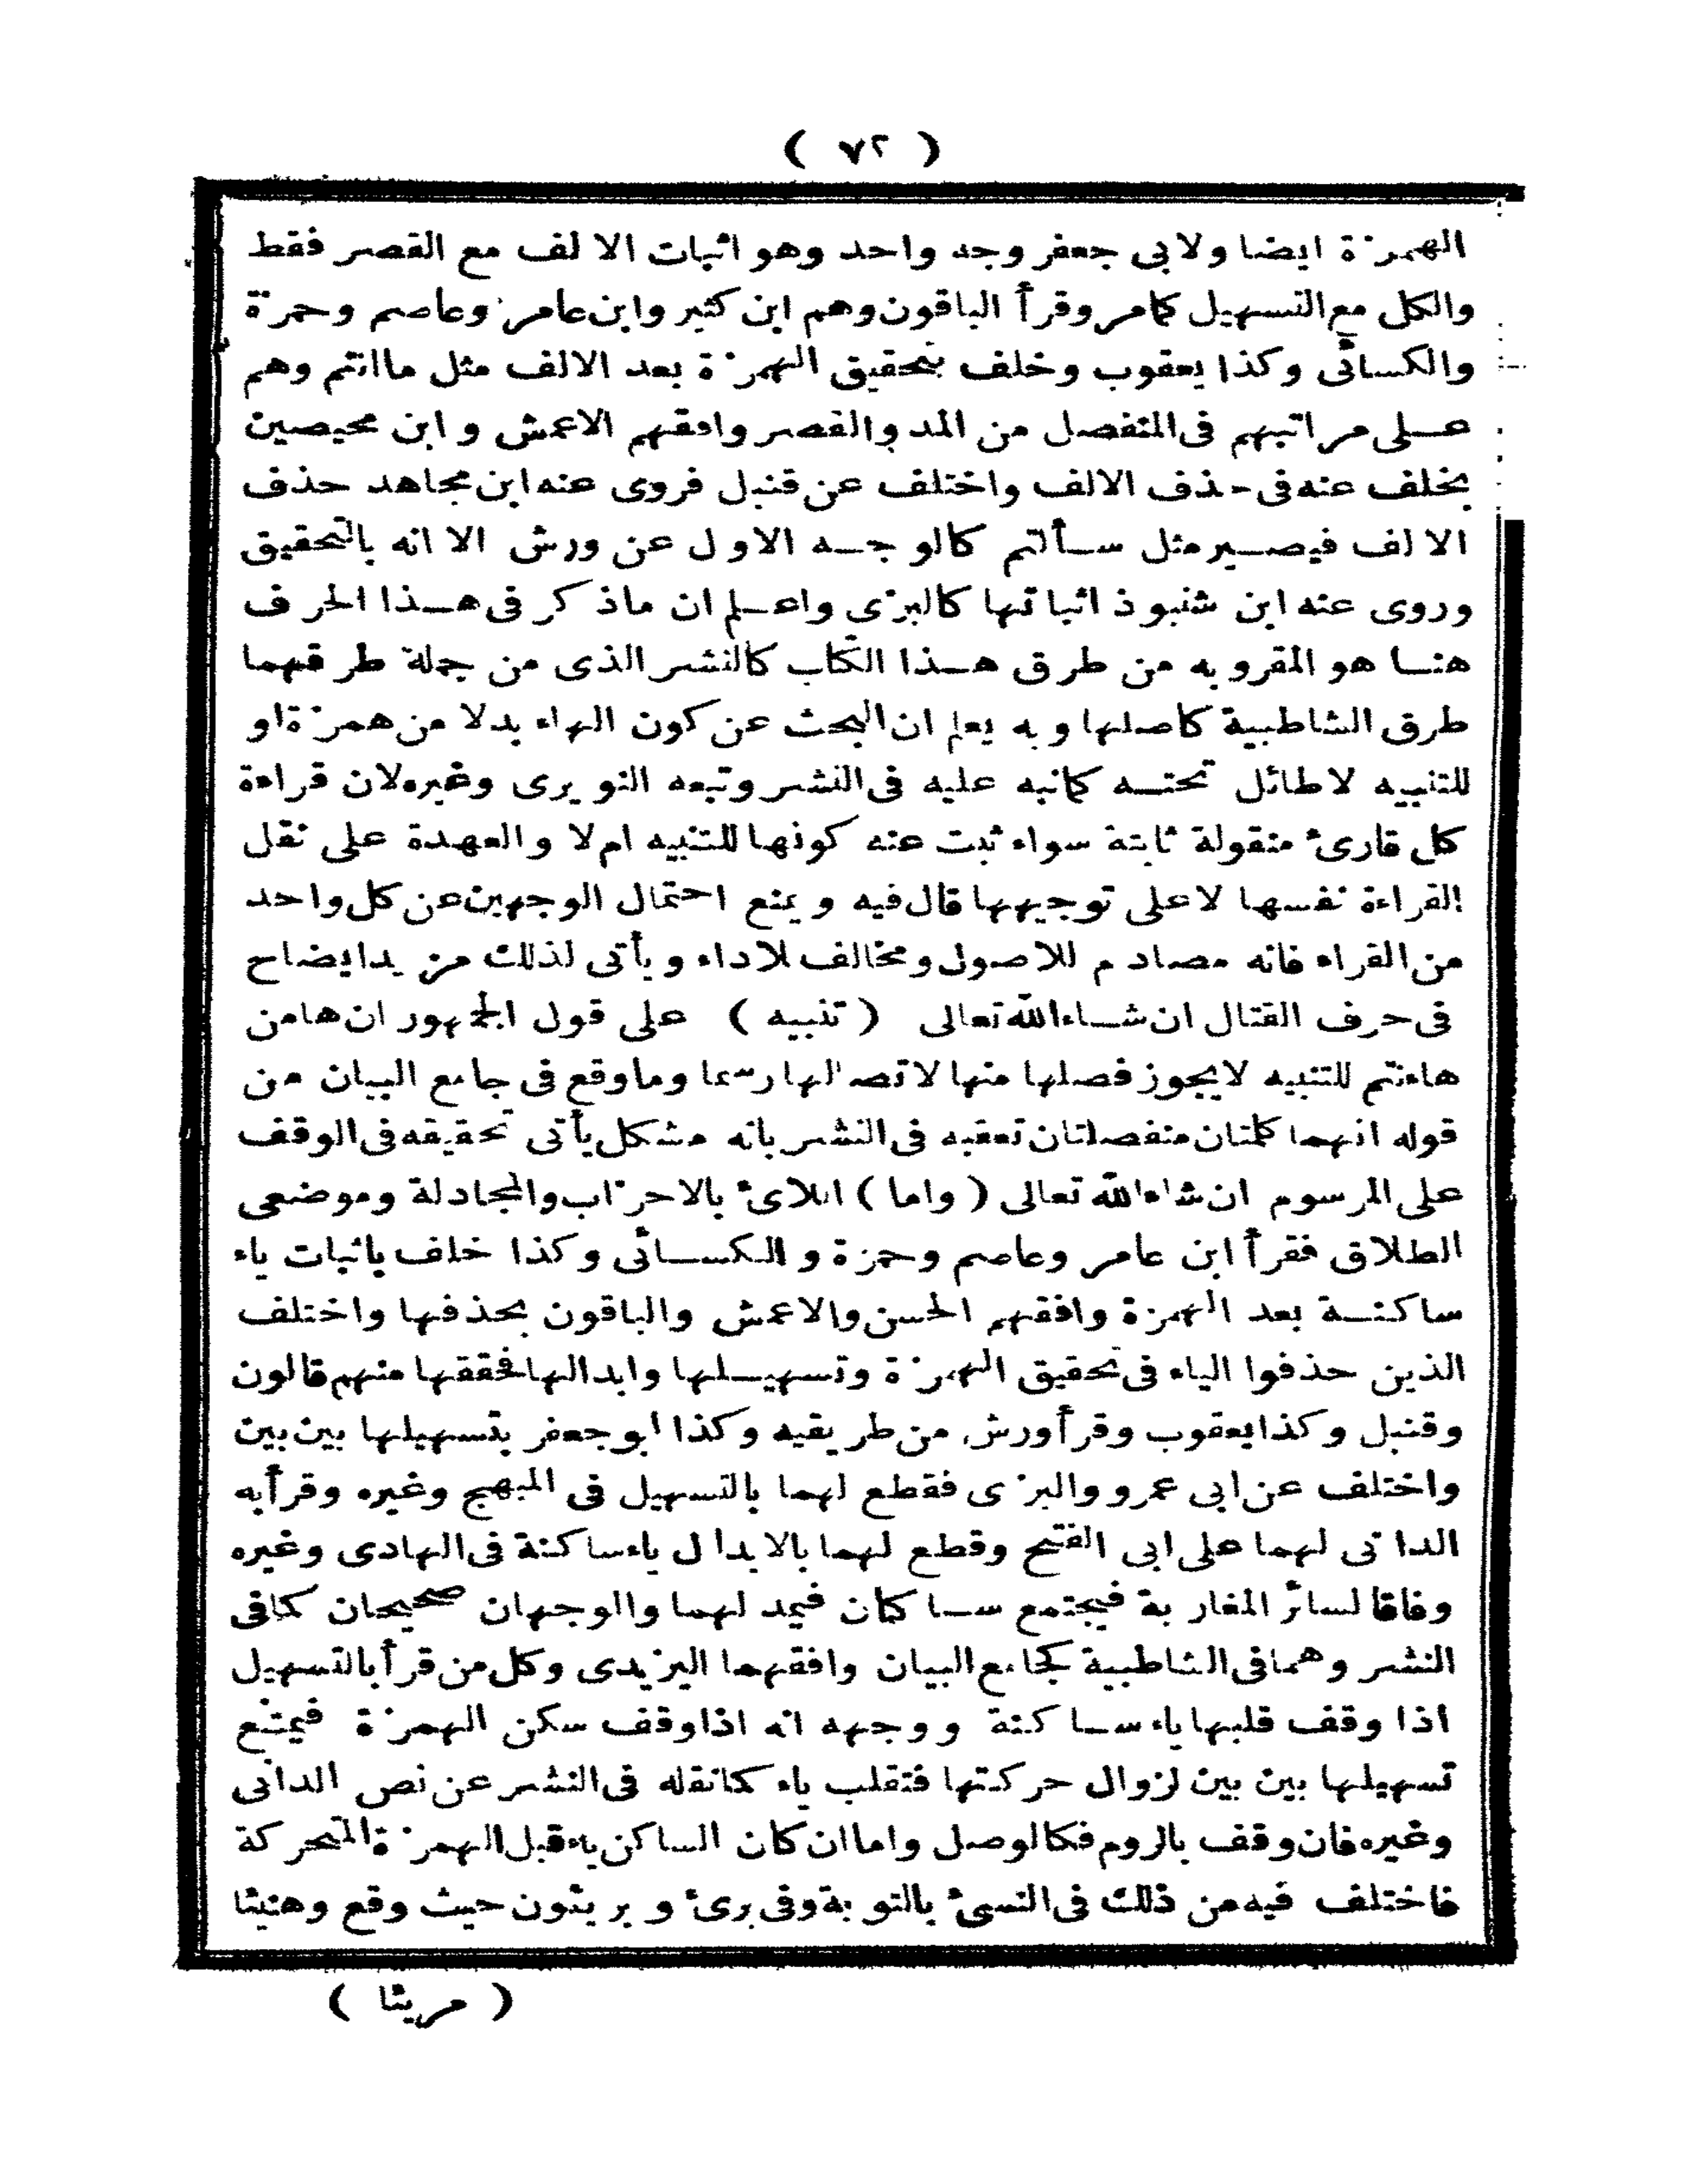 ( ٧٢ )
الهمزة ايضا ولابى جعفر وجه واحد وهو اثبات الالف مع القصر فقط
والكل مع التسهيل كمامر وقرأ الباقون وهم ابن كثير وابن عامر وعاصم وحمزة
والكسائى وكذا يعقوب وخلف بتحقيق الهمزة بعد الالف مثل ماانتم وهم
على مراتبهم فى المنفصل من المد والقصر وافقهم الاعمش وابن محيصين
بخلف عنه فى حذف الالف واختلف عن قنبل فروى عنه ابن مجاهد حذف
الالف فيصير مثل سألتم كالوجه الاول عن ورش الا انه بالتحقيق
وروى عنه ابن شنبوذ اثباتها كالبزى واعلم ان ماذكر فى هذا الحرف
هنا هو المقروبه من طرق هذا الكتاب كالنشر الذى من جملة طرقهما
طرق الشاطبية كاصلها وبه يعلم ان البحث عن كون الهاء بدلا من همزة او
للتنبيه لاطائل تحته كمانبه عليه فى النشر وتبعه النويرى وغيره لان قراءة
كل قارئ منقولة ثابتة سواء ثبت عنه كونها للتنبيه ام لا والعهدة على نقل
القراءة نفسها لاعلى توجيهها قال فيه ويمنع احتمال الوجهين عن كل واحد
من القراء فانه مصادم للاصول ومخالف للاداء ويأتى لذلك مزيد ايضاح
فى حرف القتال ان شاء الله تعالى ( تنبيه ) على قول الجمهور ان ها من
هاءنتم للتنبيه لايجوز فصلها منها لاتصالها رسما وماوقع فى جامع البيان من
قوله انهما كلمتان منفصلتان تعقبه فى النشر بانه مشكل يأتى تحقيقه فى الوقف
على المرسوم ان شاء الله تعالى ( واما ) اللائ بالاحزاب والمجادلة وموضعى
الطلاق فقرأ ابن عامر وعاصم وحمزة والكسائى وكذا خلف باثبات ياء
ساكنة بعد الهمزة وافقهم الحسن والاعمش والباقون بحذفها واختلف
الذين حذفوا الياء فى تحقيق الهمزة وتسهيلها وابدالها فحققها منهم قالون
وقنبل وكذا يعقوب وقرأ ورش من طريقيه وكذا ابو جعفر بتسهيلها بين بين
واختلف عن ابى عمرو والبزى فقطع لهما بالتسهيل فى المبهج وغيره وقرأ به
الدانى لهما على ابى الفتح وقطع لهما بالابدال ياء ساكنة فى الهادى وغيره
وفاقا لسائر المغاربة فيجتمع ساكنان فيمد لهما والوجهان صحيحان كمافى
النشر وهمافى الشاطبية كجامع البيان وافقهما اليزيدى وكل من قرأ بالتسهيل
اذا وقف قلبها ياء ساكنة ووجهه انه اذا وقف سكن الهمزة فيمتنع
تسهيلها بين بين لزوال حركتها فتقلب ياء كمانقله فى النشر عن نص الدانى
وغيره فان وقف بالروم فكالوصل واماان كان الساكن ياء قبل الهمزة المتحركة
فاختلف فيه من ذلك فى النسئ بالتوبة وفى برئ وبريئون حيث وقع وهنيئا
( مريئا )